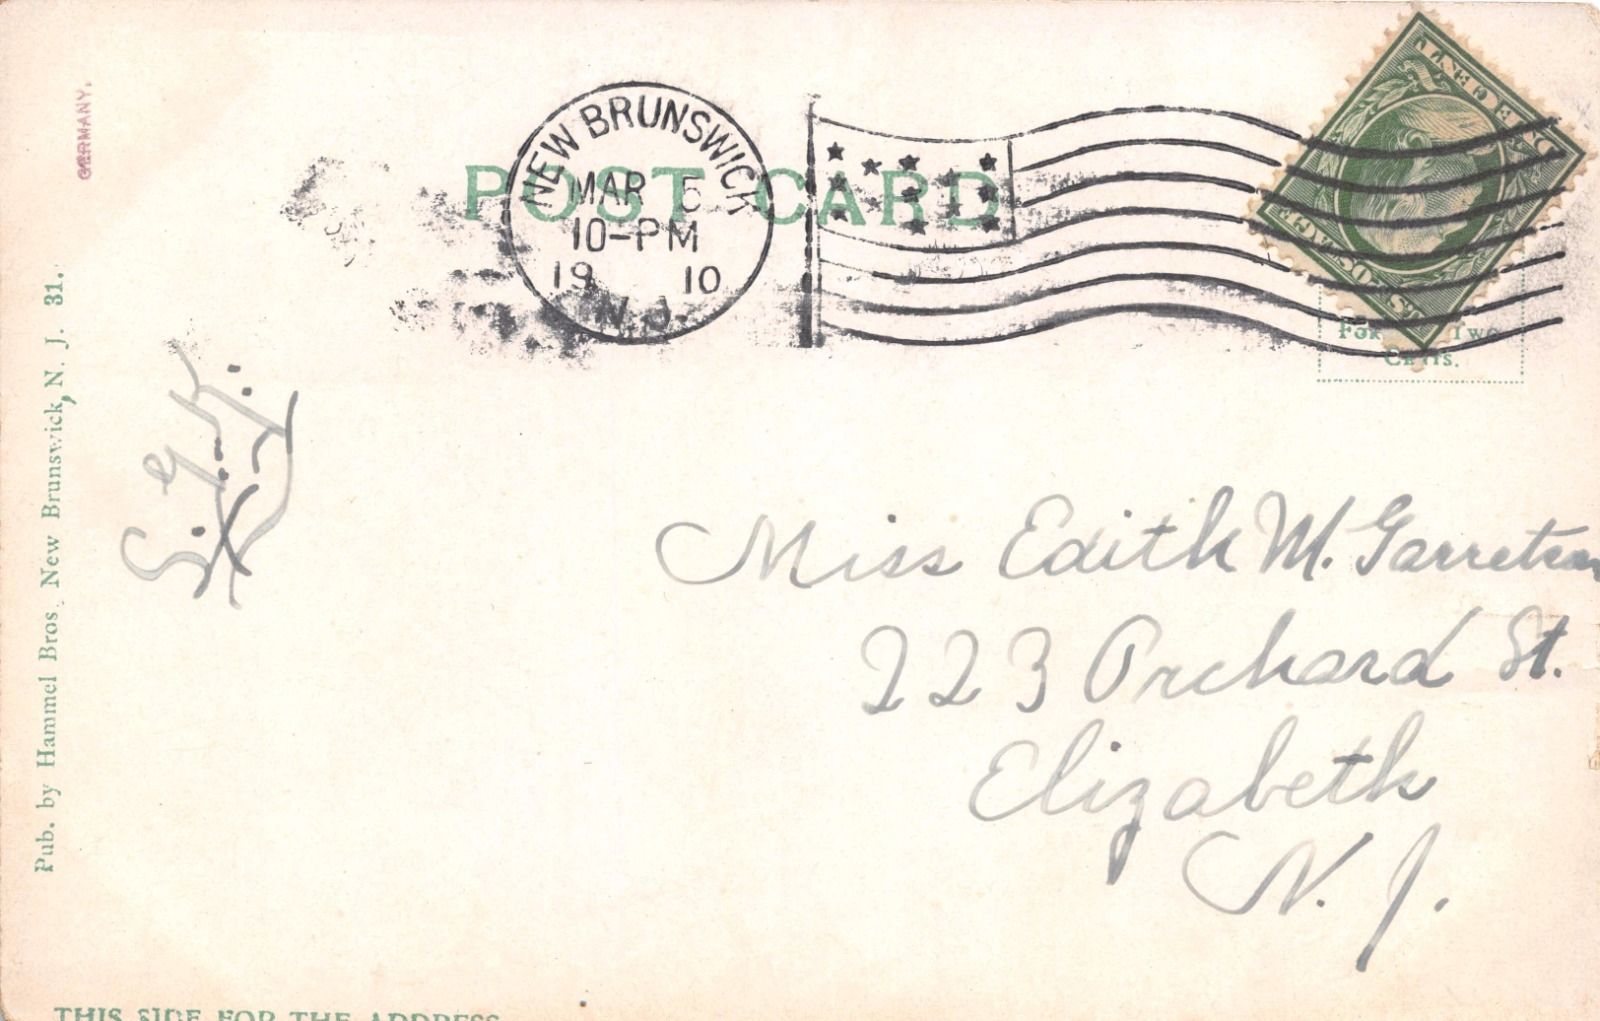 POST CARD
NEW BRUNSWICK
MAR 5
10-PM
1910
N.J.
GERMANY.
Pub. by Hammel Bros. New Brunswick, N. J. 31.
Two
Cents.
Miss Edith M. Garretson
223 Orchard St.
Elizabeth
N. J.
THIS SIDE FOR THE ADDRESS